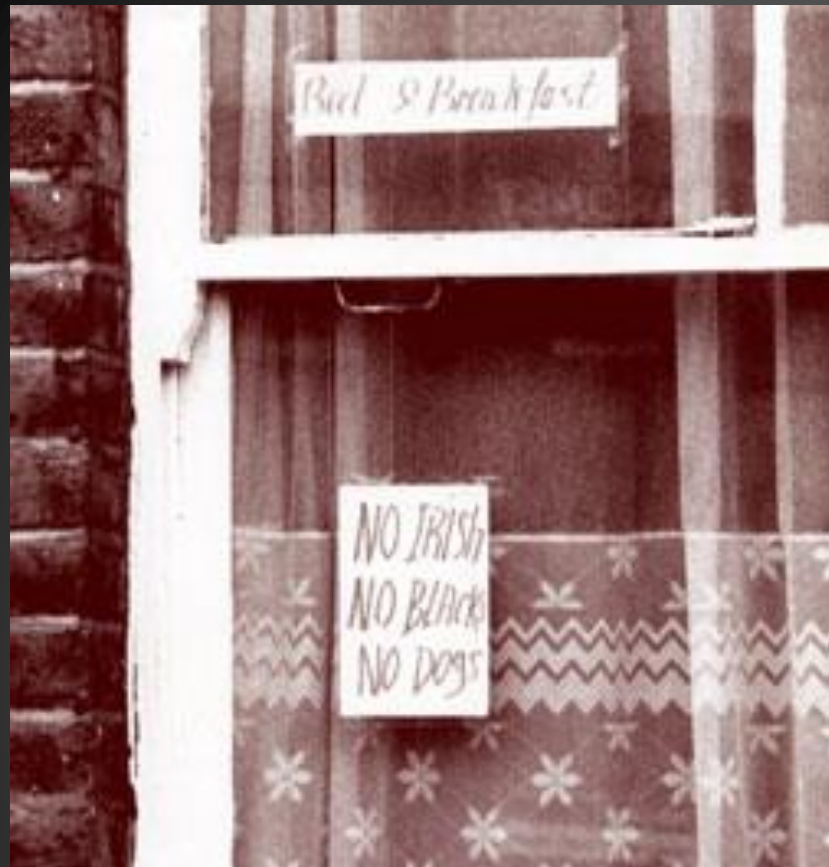 Bed & Breakfast
NO IRISh
NO BLAcks
NO DOgS